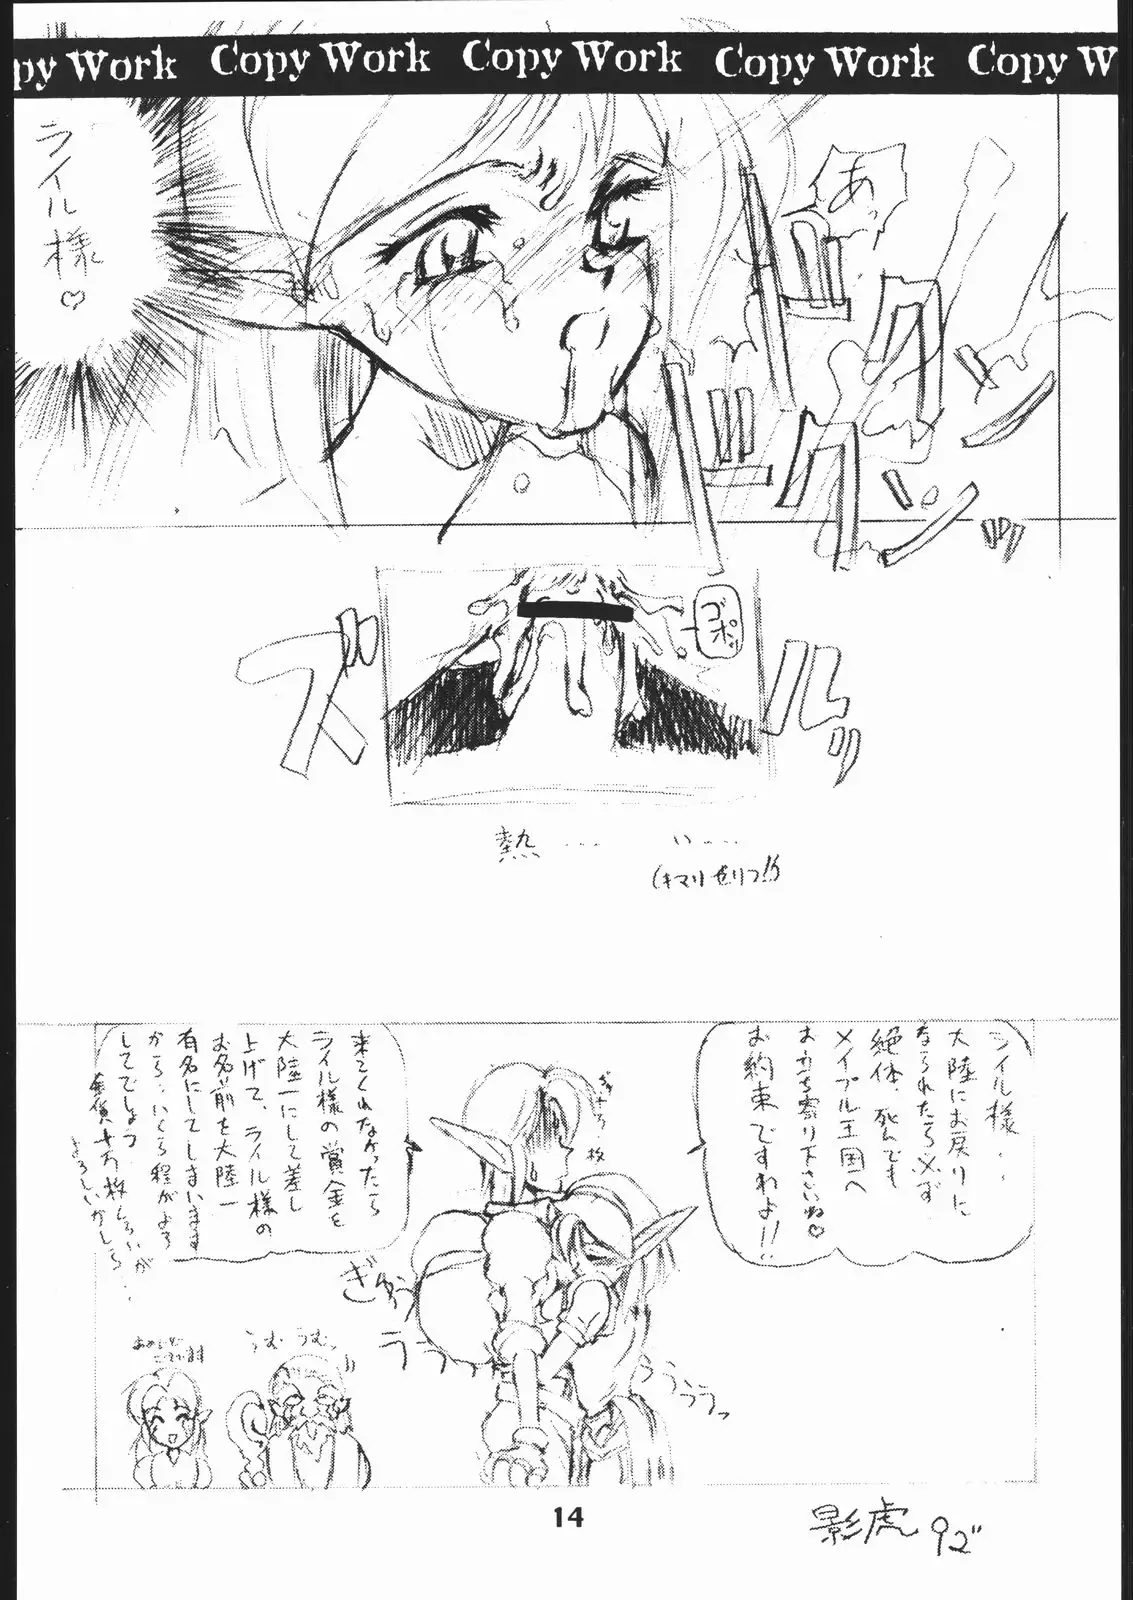 py Work Copy Work Copy Work Copy Work Copy W
あっ
ライル様♡
ズルッ
ゴポッ
熱… い…
(キマリゼリフ!!)
ライル様‥
大陸にお戻りに
なられたら必ず
絶体、死んでも
メイプル王国へ
お立ち寄り下さいね♡
お約束ですわよ!!
来てくれなかったら
ライル様の賞金を
大陸一にして差し
上げて、ライル様の
お名前を大陸一
有名にしてしまいます
から‥いくら程がよろ
してでしょう
金貨 万枚くらいが
よろしいかしら‥
ぎゅう
うう
うううっ
うむうむっ
14
影虎 92"